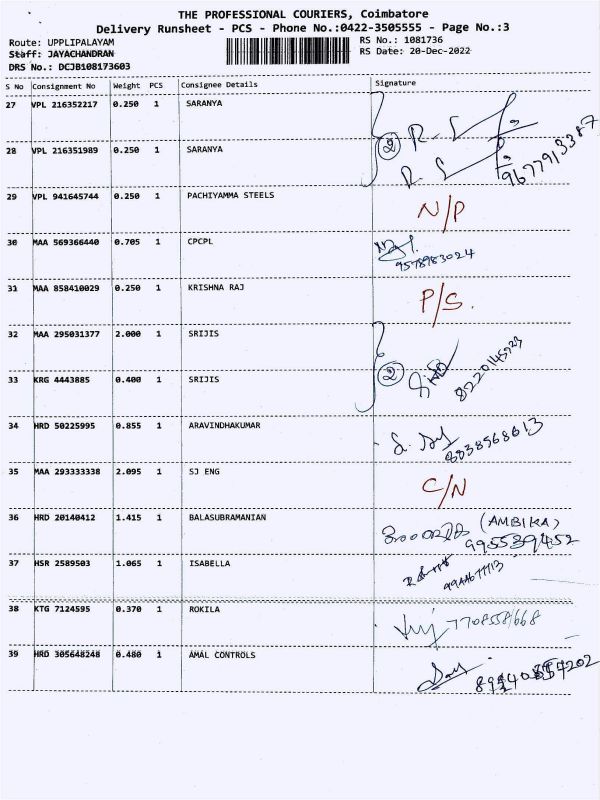 THE PROFESSIONAL COURIERS, Coimbatore
Delivery Runsheet - PCS - Phone No.:0422-3505555 - Page No.:3
Route: UPPLIPALAYAM
RS No.: 1081736
Staff: JAYACHANDRAN
RS Date: 20-Dec-2022
DRS No.: DCJB108173603
S No Consignment No Weight PCS Consignee Details Signature
27 VPL 216352217 0.250 1 SARANYA
28 VPL 216351989 0.250 1 SARANYA
② 9677913387
29 VPL 941645744 0.250 1 PACHIYAMMA STEELS N/P
30 MAA 569366440 0.705 1 CPCPL
9578983024
31 MAA 858410029 0.250 1 KRISHNA RAJ P/S.
32 MAA 295031377 2.000 1 SRIJIS
33 KRG 4443885 0.400 1 SRIJIS
②
34 HRD 50225995 0.855 1 ARAVINDHAKUMAR
35 MAA 293333338 2.095 1 SJ ENG C/N
36 HRD 20140412 1.415 1 BALASUBRAMANIAN (AMBIKA)
37 HSR 2589503 1.065 1 ISABELLA
38 KTG 7124595 0.370 1 ROKILA
39 HRD 305648248 0.480 1 AMAL CONTROLS